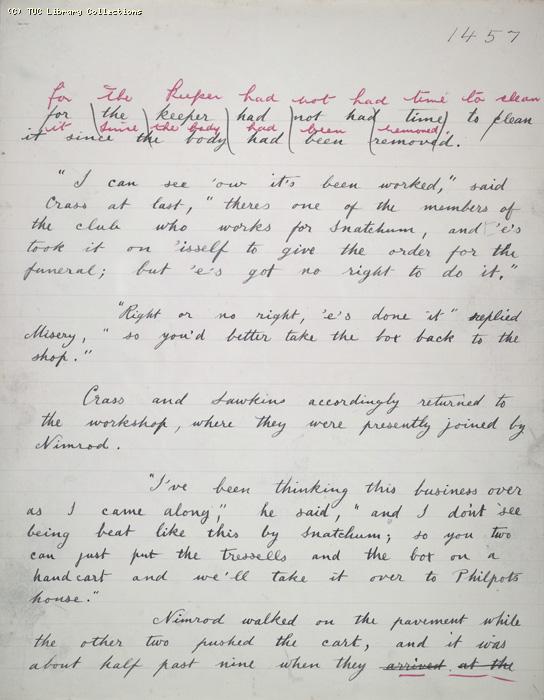 (C) TUC Library Collections
1457
for the keeper had not had time to clean
for the keeper had not had time to clean
it since the body had been removed
it since the body had been removed.
"I can see 'ow it's been worked," said
Crass at last, "theres one of the members of
the club who works for Snatchum, and 'e's
took it on 'isself to give the order for the
funeral; but 'e's got no right to do it."
"Right or no right, 'e's done it" replied
Misery, "so you'd better take the box back to the
shop."
Crass and Sawkins accordingly returned to
the workshop, where they were presently joined by
Nimrod.
"I've been thinking this business over
as I came along," he said, "and I don't see
being beat like this by Snatchum; so you two
can just put the tressells and the box on a
handcart and we'll take it over to Philpots
house."
Nimrod walked on the pavement while
the other two pushed the cart, and it was
about half past nine when they arrived at the